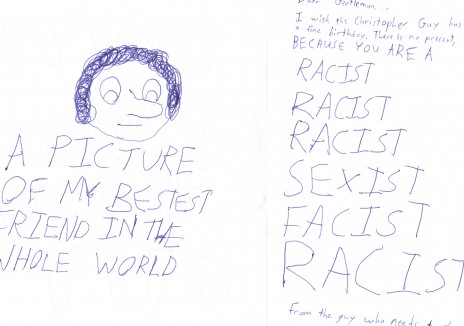 A PICTURE
OF MY BESTEST
FRIEND IN THE
WHOLE WORLD
Dear Gentleman...
I wish the Christopher Guy has
a fine birthday. There is no present,
BECAUSE YOU ARE A
RACIST
RACIST
RACIST
SEXIST
FACIST
RACIST
From the guy who needs